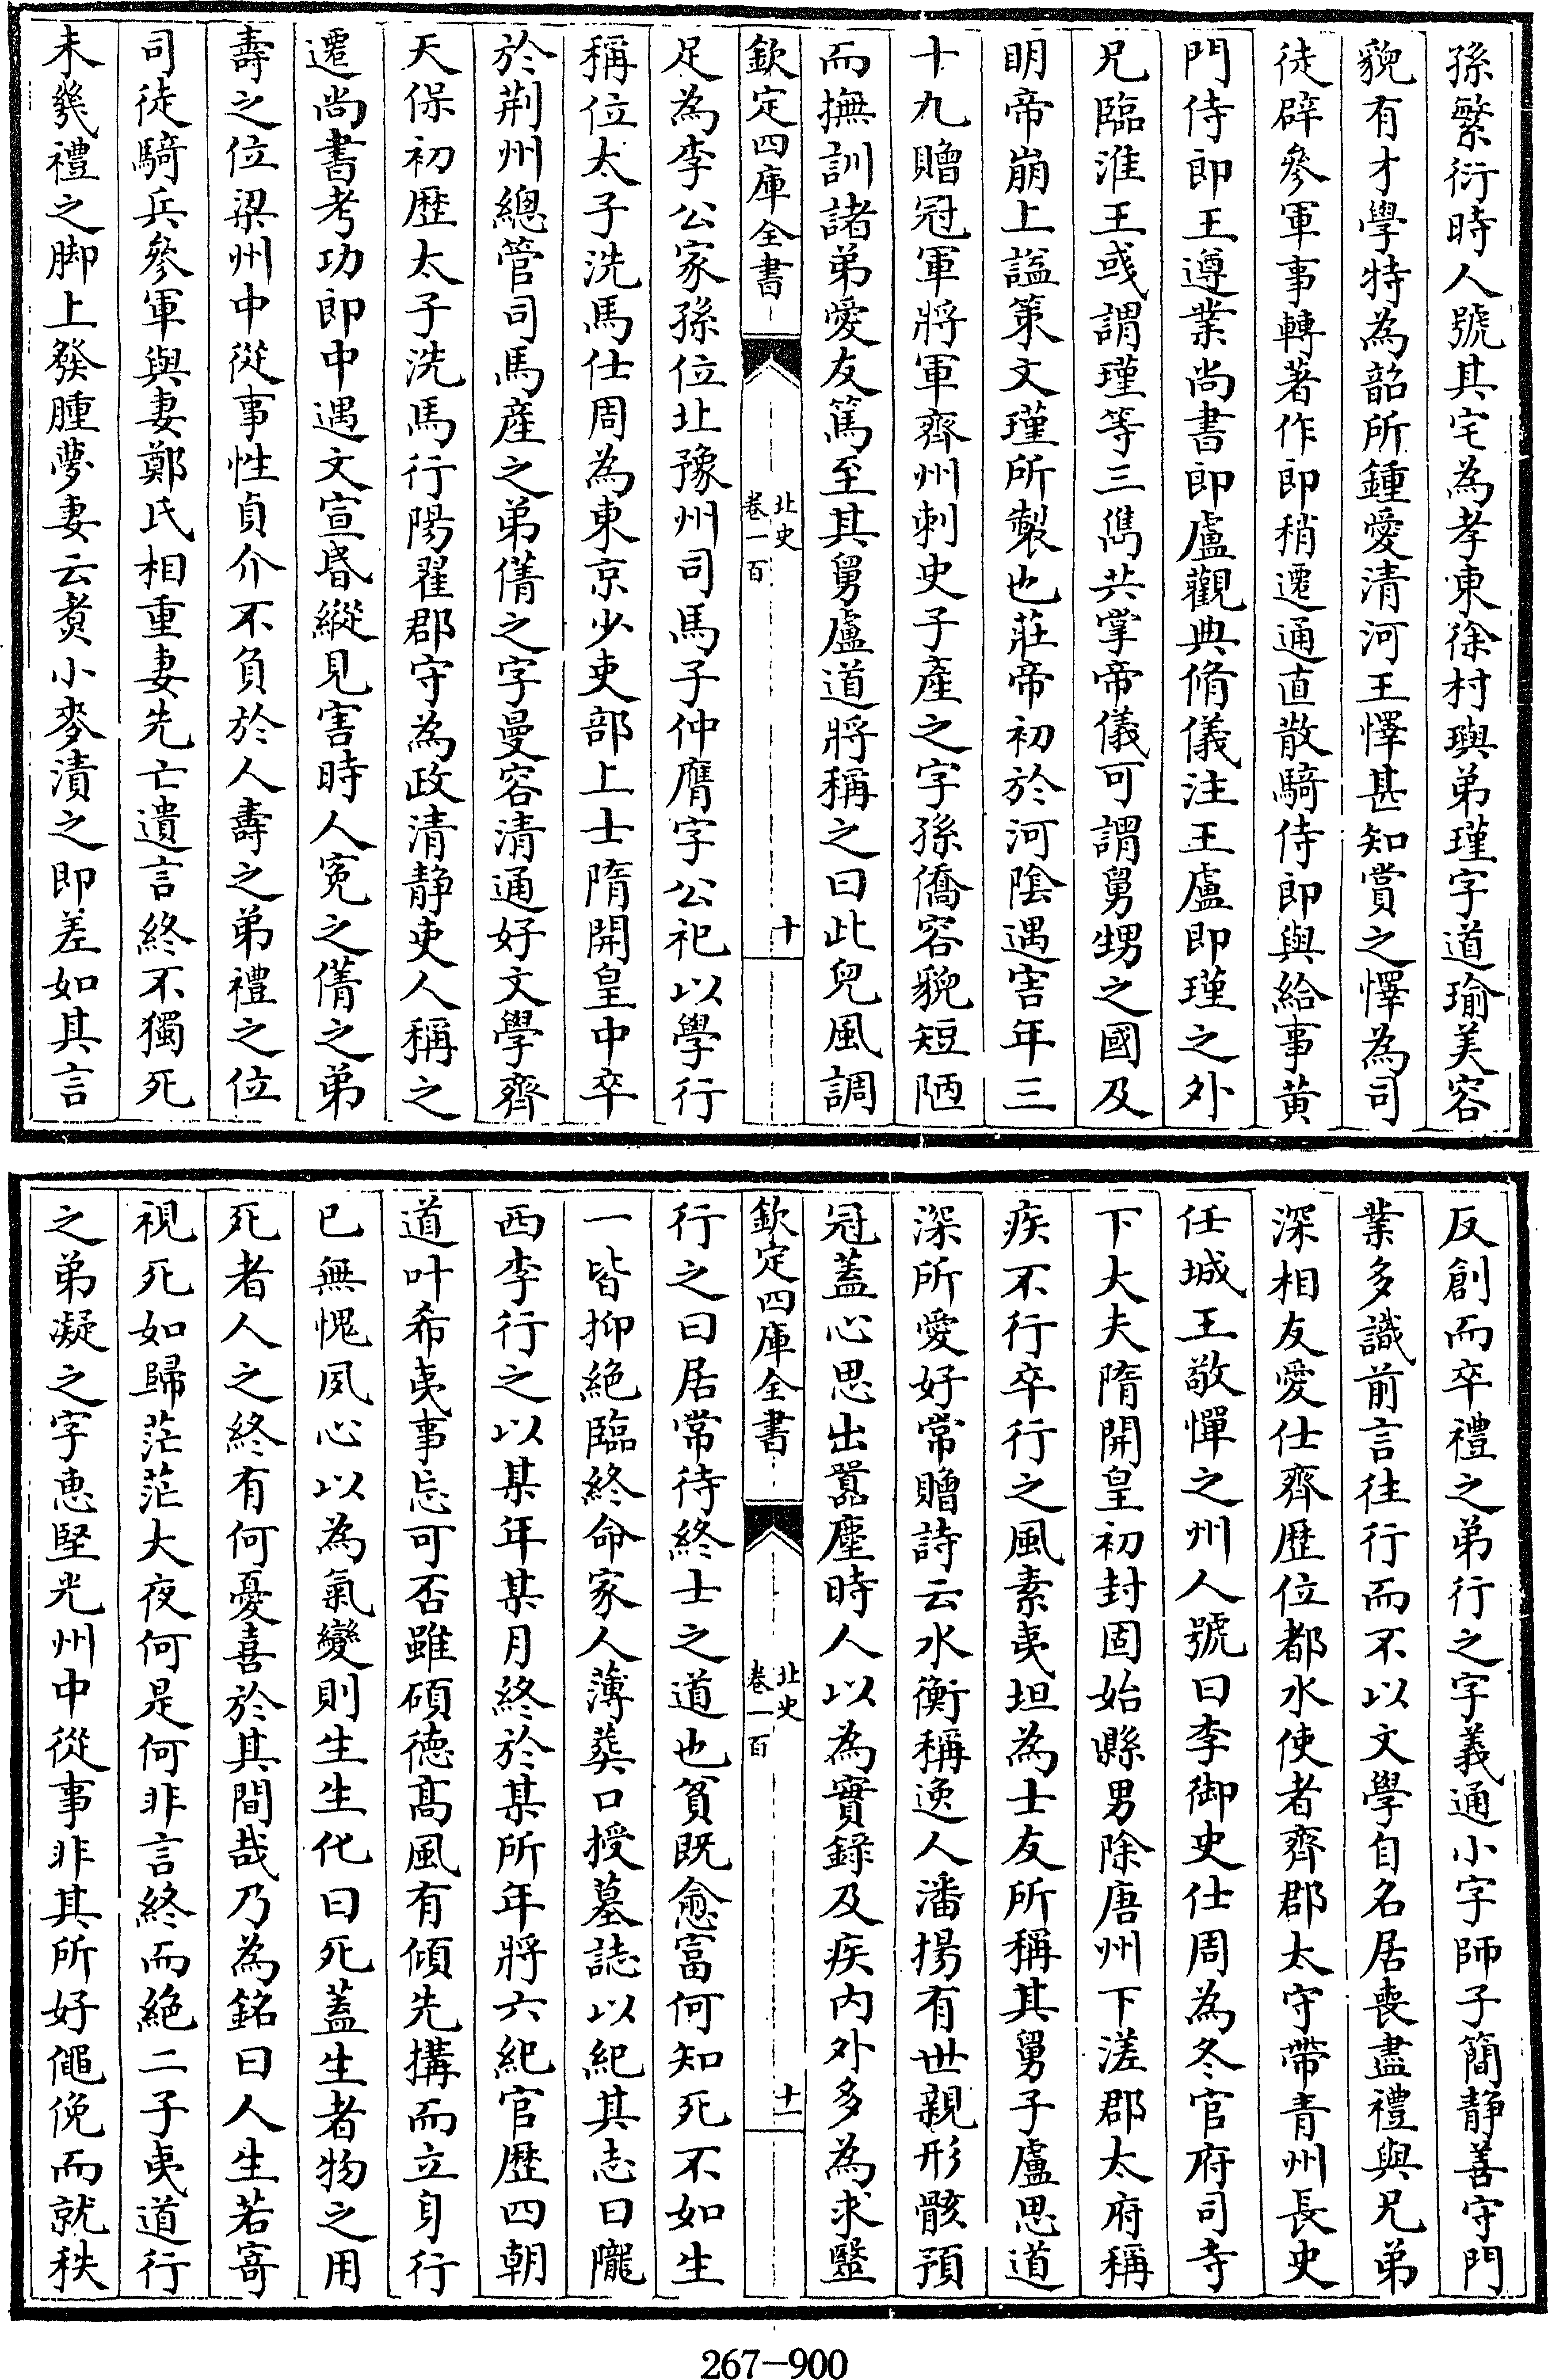 孫繁衍時人號其宅為孝東徐村璵弟瑾字道瑜美容
貌有才學特為韶所鍾愛清河王懌甚知賞之懌為司
徒辟參軍事轉著作郎稍遷通直散騎侍郎與給事黄
門侍郎王遵業尚書郎盧觀典脩儀注王盧即瑾之外
兄臨淮王彧謂瑾等三儁共掌帝儀可謂舅甥之國及
明帝崩上諡策文瑾所製也莊帝初於河隂遇害年三
十九贈冠軍將軍齊州刺史子產之字孫僑容貌短陋
而撫訓諸弟愛友篤至其舅盧道將稱之曰此兒風調
欽定四庫全書
北史
卷一百
十
足為李公家孫位北豫州司馬子仲膺字公祀以學行
稱位太子洗馬仕周為東京少吏部上士隋開皇中卒
於荆州總管司馬産之弟蒨之字曼容清通好文學齊
天保初歴太子洗馬行陽翟郡守為政清静吏人稱之
遷尚書考功郎中遇文宣昏縱見害時人寃之蒨之弟
壽之位梁州中從事性貞介不負於人壽之弟禮之位
司徒騎兵參軍與妻鄭氏相重妻先亡遺言終不獨死
未㡬禮之脚上發腫夢妻云煑小麥漬之即差如其言
反創而卒禮之弟行之字義通小字師子簡静善守門
業多識前言往行而不以文學自名居喪盡禮與兄弟
深相友愛仕齊歴位都水使者齊郡太守帶青州長史
任城王敬憚之州人號曰李御史仕周為冬官府司寺
下大夫隋開皇初封固始縣男除唐州下溠郡太府稱
疾不行卒行之風素夷坦為士友所稱其舅子盧思道
深所愛好常贈詩云水衡稱逸人潘揚有世親形骸預
冠蓋心思出囂塵時人以為實錄及疾内外多為求毉
欽定四庫全書
北史
卷一百
十一
行之曰居常待終士之道也貧既愈富何知死不如生
一皆抑絶臨終命家人薄葬口授墓誌以紀其志曰隴
西李行之以某年某月終於某所年將六紀官歴四朝
道叶希夷事忘可否雖碩德髙風有傾先搆而立身行
已無愧夙心以為氣變則生生化曰死蓋生者物之用
死者人之終有何憂喜於其間哉乃為銘曰人生若寄
視死如歸茫茫大夜何是何非言終而絶二子夷道行
之弟凝之字惠堅光州中從事非其所好僶俛而就秩
267-900